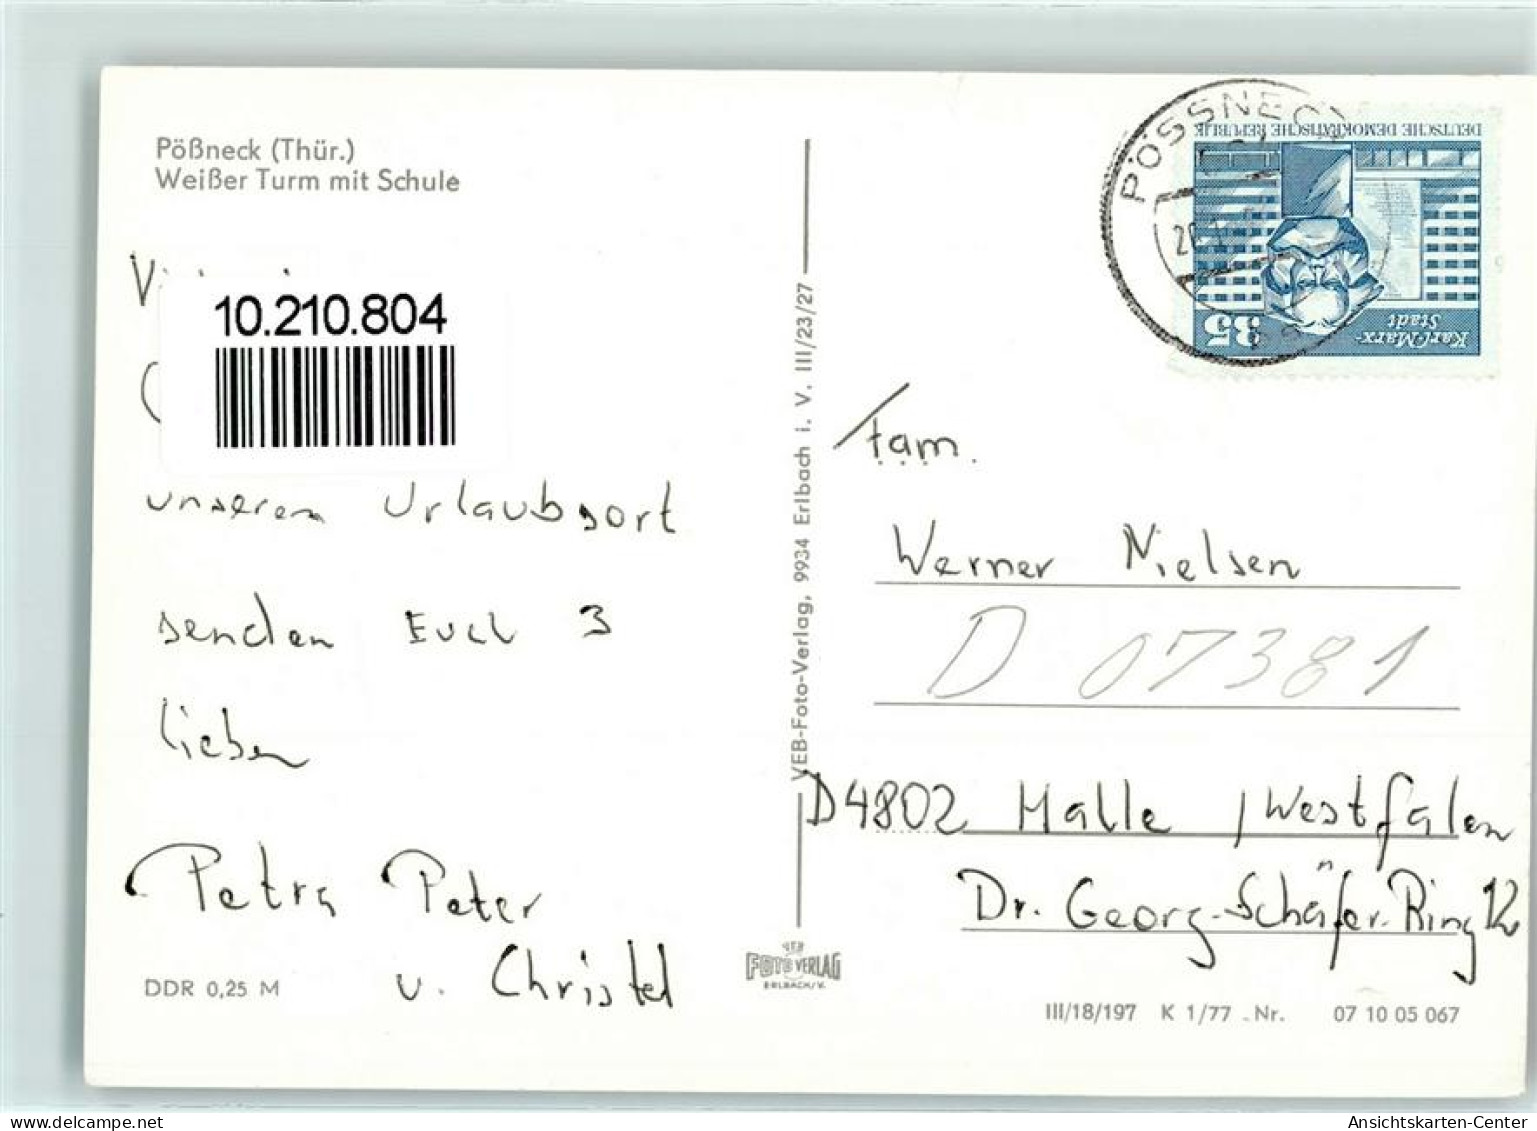 Pößneck (Thür.)
Weißer Turm mit Schule
10.210.804
unserem Urlaubsort
senden Euch 3
lieben
Petra Peter
u. Christel
DDR 0,25 M
VEB-Foto-Verlag, 9934 Erlbach i. V. III/23/27
VEB
FOTO VERLAG
ERLBACH/V.
PÖSSNECK
DEUTSCHE DEMOKRATISCHE REPUBLIK
Karl-Marx-
Stadt
35
Fam.
Werner Nielsen
D 07381
D4802 Halle /Westfalen
Dr. Georg-Schäfer-Ring 12
III/18/197 K 1/77 Nr. 07 10 05 067
Ansichtskarten-Center